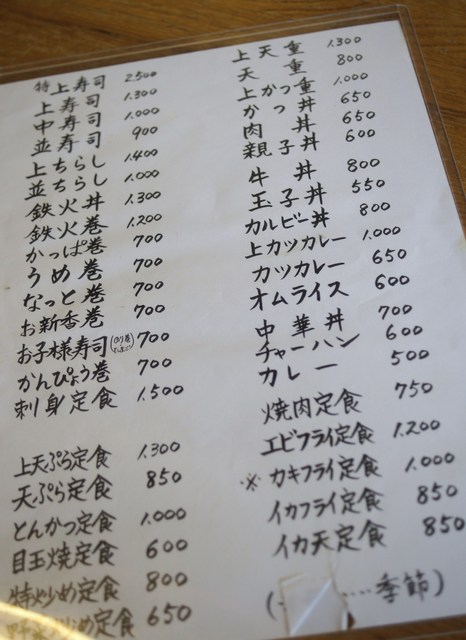 特上寿司 2500
上寿司 1.300
中寿司 1.000
並寿司 900
上ちらし 1.400
並ちらし 1.000
鉄火丼 1.300
鉄火巻 1.200
かっぱ巻 700
うめ巻 700
なっと巻 700
お新香巻 700
お子様寿司 (のり巻 700
かんぴょう巻 700
刺身定食 1.500
上天ぷら定食 1.300
天ぷら定食 850
とんかつ定食 1.000
目玉焼定食 600
特炒め定食 800
野菜炒め定食 650
上天重 1.300
天重 800
上かつ重 1.000
かつ丼 650
肉丼 650
親子丼 600
牛丼 800
玉子丼 550
カルビー丼 800
上カツカレー 1.000
カツカレー 650
オムライス 600
中華丼 700
チャーハン 600
カレー 500
焼肉定食 750
エビフライ定食 1.200
※カキフライ定食 1.000
イカフライ定食 850
イカ天定食 850
(……季節)